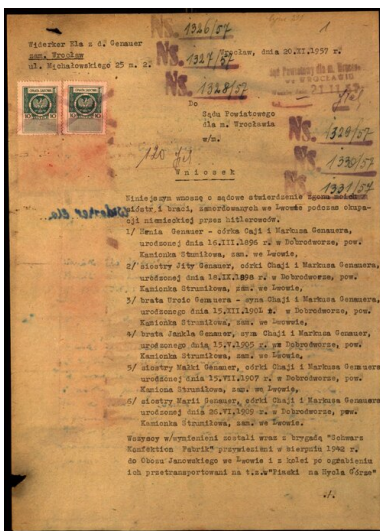 1
Ns. 1326/57
Widerker Ela z d. Genauer
zam. Wrocław
ul. Michałowskiego 25 m. 2.
Ns. 1327/57
Wrocław, dnia 20.XI.1957 r.
Ns. 1328/57
Sąd Powiatowy dla m.
we WROCŁAWIU
21.11.
Do
Sądu Powiatowego
dla m. Wrocławia
w/m.
Ns. 1329/57
Ns. 1330/57
Ns. 1331/57
120
W n i o s e k
Niniejszym wnoszę o sądowe stwierdzenie zgonu
sióstr i braci, zamordowanych we Lwowie podczas okupa-
cji niemieckiej przez hitlerowców.
1/ Genauer - córka Caji i Markusa Genauera,
urodzonej dnia 16.III.1896 r. w Dobrodworze, pow.
Kamionka Strumiłowa, zam. we Lwowie,
2/ siostry Jity Genauer, córki Chaji i Markusa Genauera,
urodzonej dnia r. w Dobrodworze, pow.
Kamionka Strumiłowa, zam. we Lwowie,
3/ brata Genauera - syna Chaji i Markusa Genauera,
urodzonego dnia 15.XII.1901 r. w Dobrodworze, pow.
Kamionka Strumiłowa, zam. we Lwowie,
4/ brata Jankla Genauer, syna Chaji i Markusa Genauer,
urodzonego dnia 15.V.1905 r. w Dobrodworze, pow.
Kamionka Strumiłowa, zam. we Lwowie,
5/ siostry Malki Genauer, córki Chaji i Markusa Genauera
urodzonej dnia 15.VII.1907 r. w Dobrodworze, pow.
Kamiona Strumiłowa, zam. we Lwowie,
6/ siostry Marii Genauer, córki Chaji i Markusa Genauera
urodzonej dnia 26.VI.1909 r. w Dobrodworze, pow.
Kamionka Strumiłowa, zam. we Lwowie.
Wszyscy w/wymienieni zostali wraz z brygadą "Schwarz
Konfektion Fabrik" przywiezieni w sierpniu 1942 r.
do Obozu Janowskiego we Lwowie i z kolei po ograbieniu
ich przetransportowani na t.zw"Piaski na Hycla Górze"